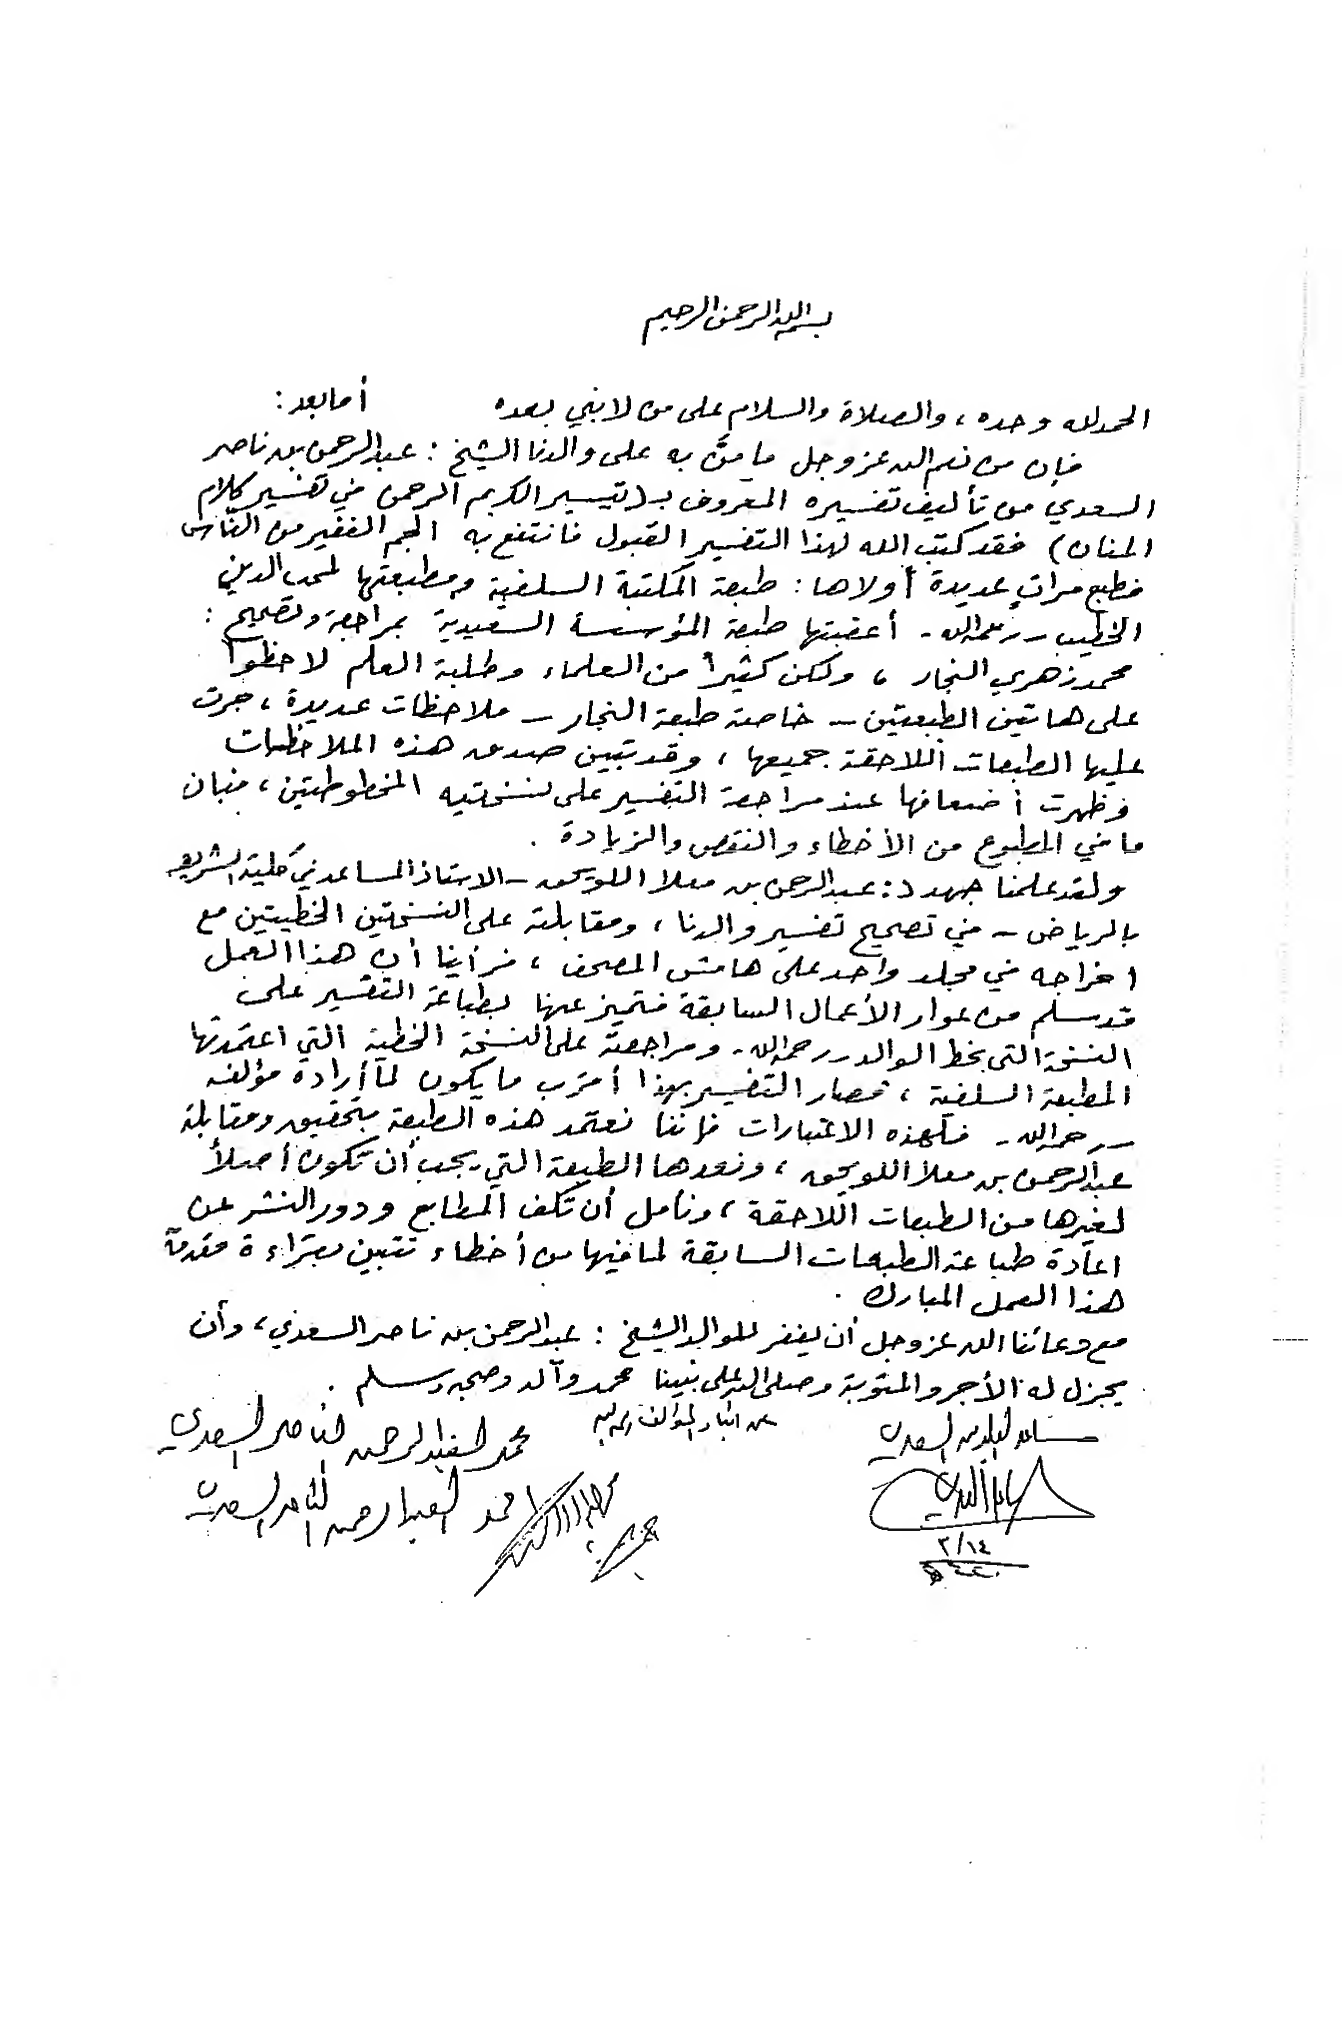 بسم الله الرحمن الرحيم
الحمد لله وحده ، والصلاة والسلام على من لا نبي بعده أما بعد :
فإن من نعم الله عز وجل ما منَّ به على والدنا الشيخ : عبد الرحمن بن ناصر
السعدي من تأليف تفسيره المعروف بـ ( تيسير الكريم الرحمن في تفسير كلام
المنان ) فقد كتب الله لهذا التفسير القبول فانتفع به الجم الغفير من الناس
فطبع مراتٍ عديدة أولاها : طبعة المكتبة السلفية ومطبعتها لمحب الدين
الخطيب - رحمه الله - أعقبتها طبعة المؤسسة السعيدية بمراجعة وتصحيح :
محمد زهري النجار ، ولكن كثيراً من العلماء وطلبة العلم لاحظوا
على هاتين الطبعتين - خاصة طبعة النجار - ملاحظات عديدة ، جرت
عليها الطبعات اللاحقة جميعها ، وقد تبين صدق هذه الملاحظات
وظهرت أضعافها عند مراجعة التفسير على نسختيه المخطوطتين ، فبان
ما في المطبوع من الأخطاء والنقص والزيادة .
ولقد علمنا جهد د : عبد الرحمن بن معلا اللويحق - الاستاذ المساعد في كلية الشريعة
بالرياض - في تصحيح تفسير والدنا ، ومقابلته على النسختين الخطيتين مع
اخراجه في مجلد واحد على هامش المصحف ، فرأينا أن هذا العمل
قد سلم من عوار الأعمال السابقة فتميز عنها بطباعة التفسير على
النسخة التي بخط الوالد - رحمه الله - ومراجعته على النسخة الخطية التي اعتمدتها
المطبعة السلفية ، فصار التفسير بهذا أقرب ما يكون لما أراده مؤلفه
- رحمه الله - فلهذه الاعتبارات فإننا نعتمد هذه الطبعة بتحقيق ومقابلة
عبد الرحمن بن معلا اللويحق ، ونعدها الطبعة التي يجب أن تكون أصلاً
لغيرها من الطبعات اللاحقة ، ونأمل أن تكف المطابع ودور النشر عن
اعادة طباعة الطبعات السابقة لما فيها من أخطاء تتبين بقراءة مقدمة
هذا العمل المبارك .
مع دعائنا الله عز وجل أن يغفر للوالد الشيخ : عبد الرحمن بن ناصر السعدي ، وأن
يجزل له الأجر والمثوبة وصلى الله على نبينا محمد وآله وصحبه وسلم .
عن أبناء المؤلف رحمه الله
محمد العبد الرحمن الناصر السعدي
احمد العبد الرحمن الناصر السعدي
٣/١٤
١٤٢٠هـ